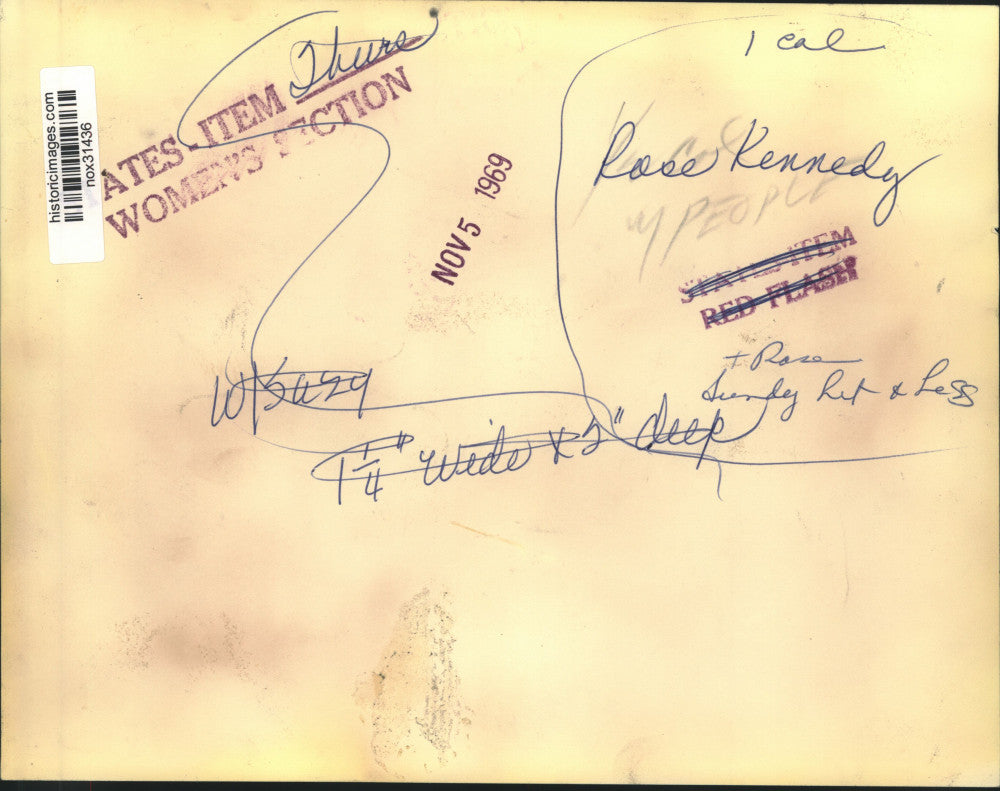 Thurs
1 col
historicimages.com
nox31436
ATES-ITEM
WOMEN'S SECTION
NOV 5 1969
Rose Kennedy
w/ PEOPLE
STATES-ITEM
RED FLASH
+ Rose
1 1/4" wide x 2" deep